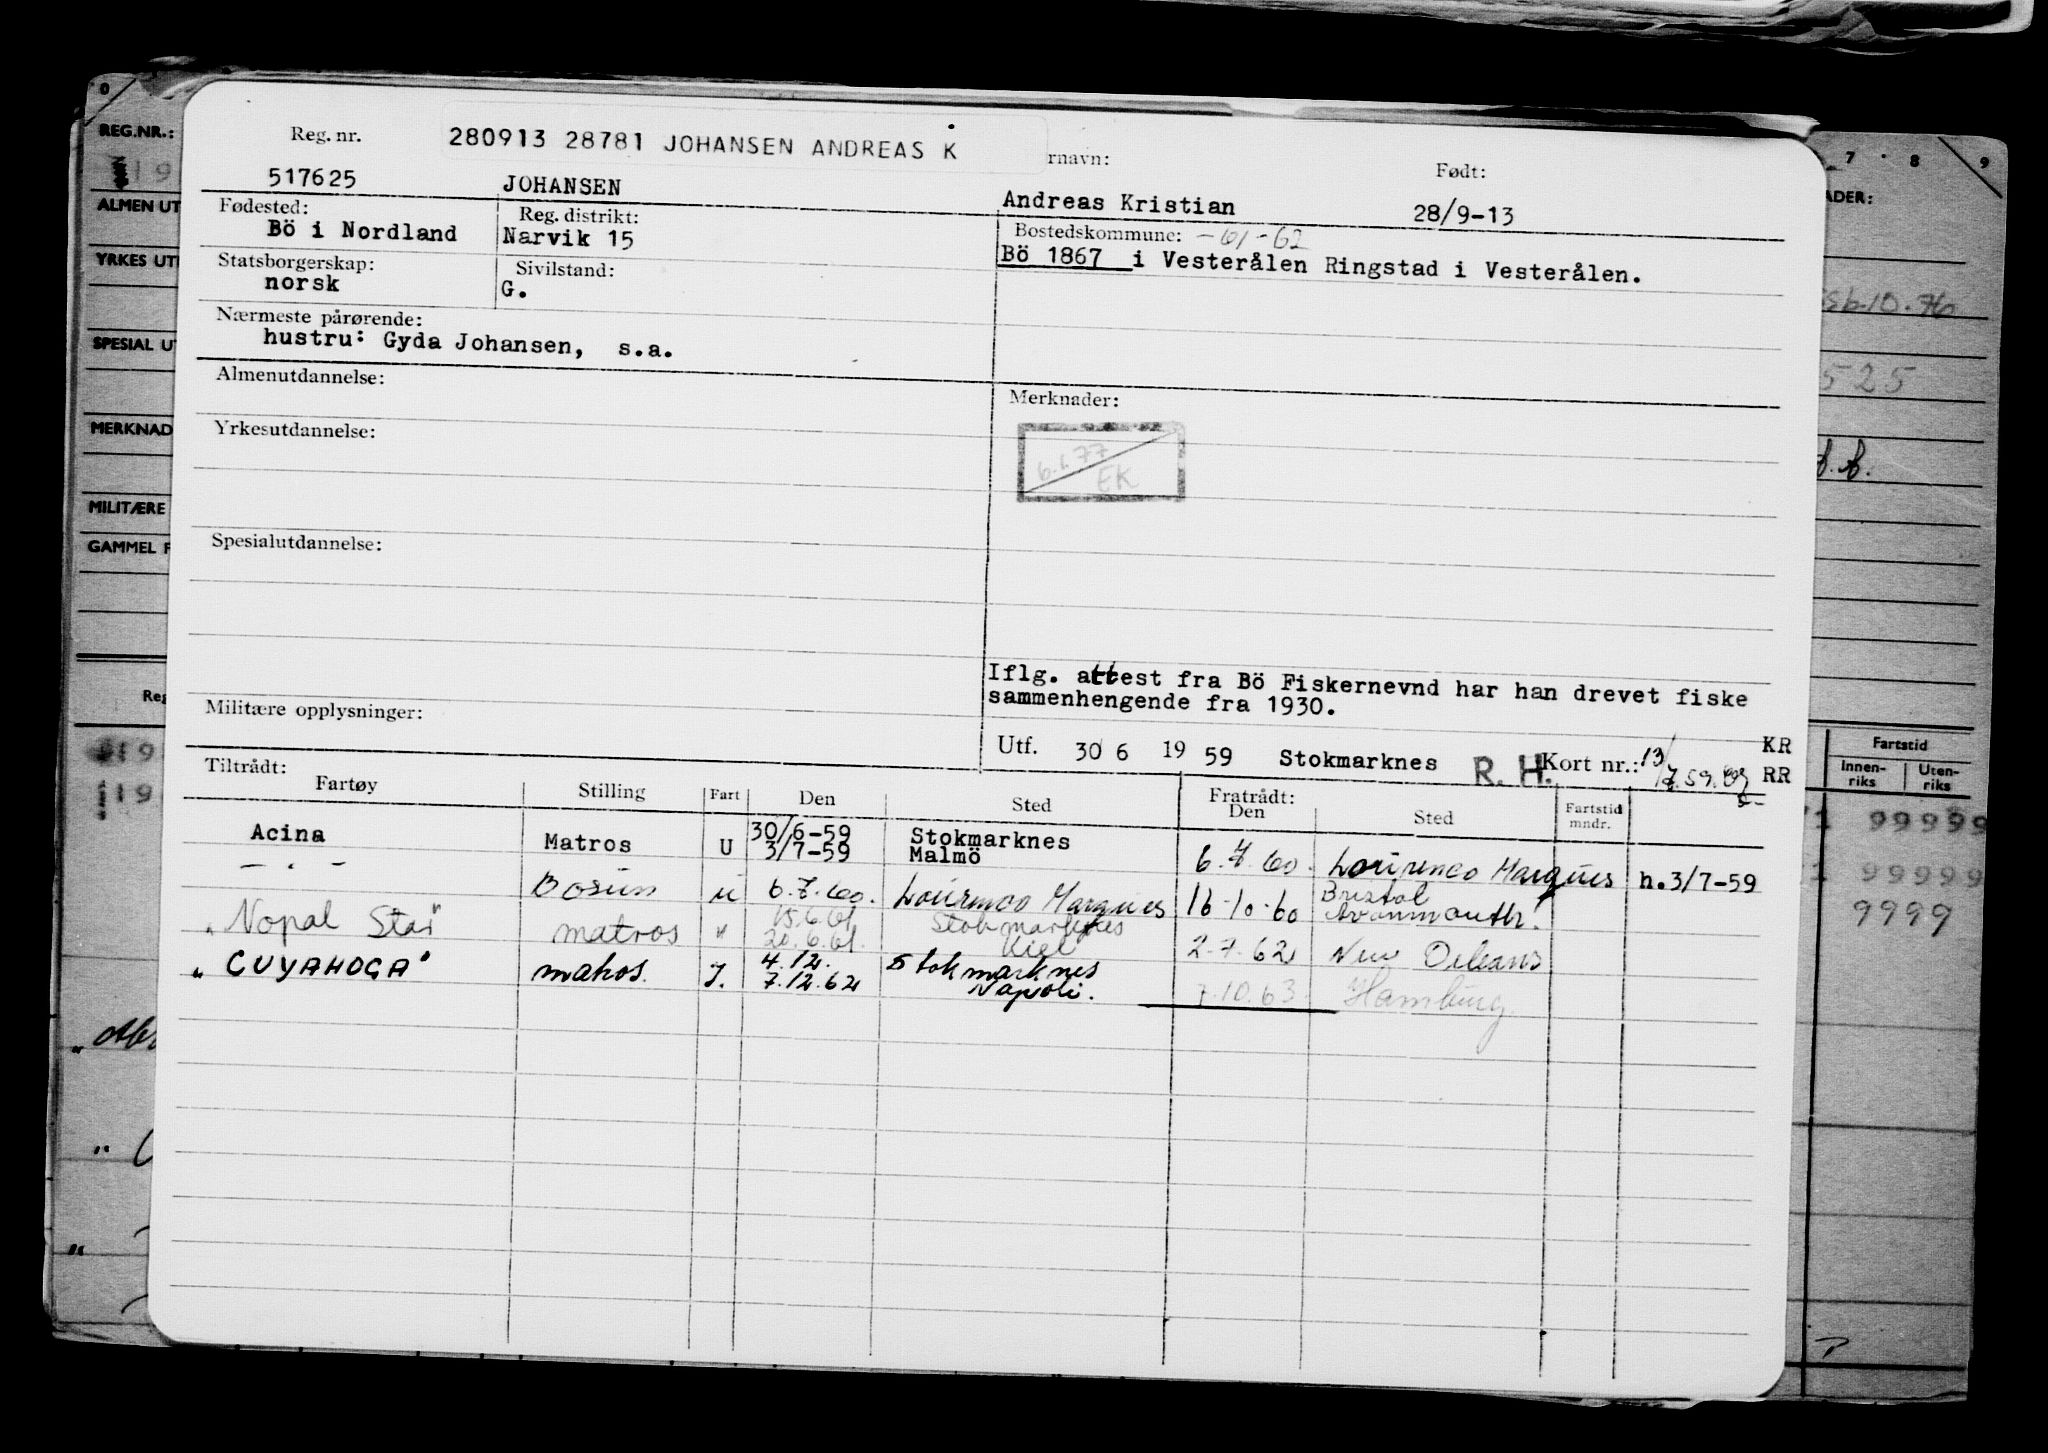 280913 28781 JOHANSEN ANDREAS K
Reg. nr. rnavn: Født:
517625 JOHANSEN Andreas Kristian 28/9-13
Fødested: Reg. distrikt: Bostedskommune: -61-62
Bö i Nordland Narvik 15 Bö 1867 i Vesterålen Ringstad i Vesterålen.
Statsborgerskap: Sivilstand:
norsk G.
Nærmeste pårørende:
hustru: Gyda Johansen, s.a.
Almenutdannelse: Merknader:
Yrkesutdannelse:
6.1.77
EK
Spesialutdannelse:
Iflg. attest fra Bö Fiskernevnd har han drevet fiske
sammenhengende fra 1930.
Militære opplysninger:
Utf. 30/6 19 59 Stokmarknes R. H. Kort nr.: 13/7.59. KR
RR
Tiltrådt: Fratrådt:
Fartøy Stilling Fart Den Sted Den Sted Fartstid mndr.
Acina Matros U 30/6-59 Stokmarknes
3/7-59 Malmö 6.7.60. Lourenco Marques h.3/7-59
— . — Bosun u 6.7.60. Lourenco Marques 16-10-60 Bristol
Avonmouth.
"Nopal Star" matros " 15.6.61. Stokmarknes
20.6.61. Kiel 2.7.62 New Orleans
"CUYAHOGA" matros. 4.12. Stokmarknes
7.12.62 Napoli. 7.10.63. Hamburg.
REG.NR.:
ALMEN UT
YRKES UT
SPESIAL UT
MERKNAD
MILITÆRE
GAMMEL F
Reg
0
7 8 9
ADER:
10.76
525
Fartstid
Innen-
riks
Uten-
riks
99999
99999
9999